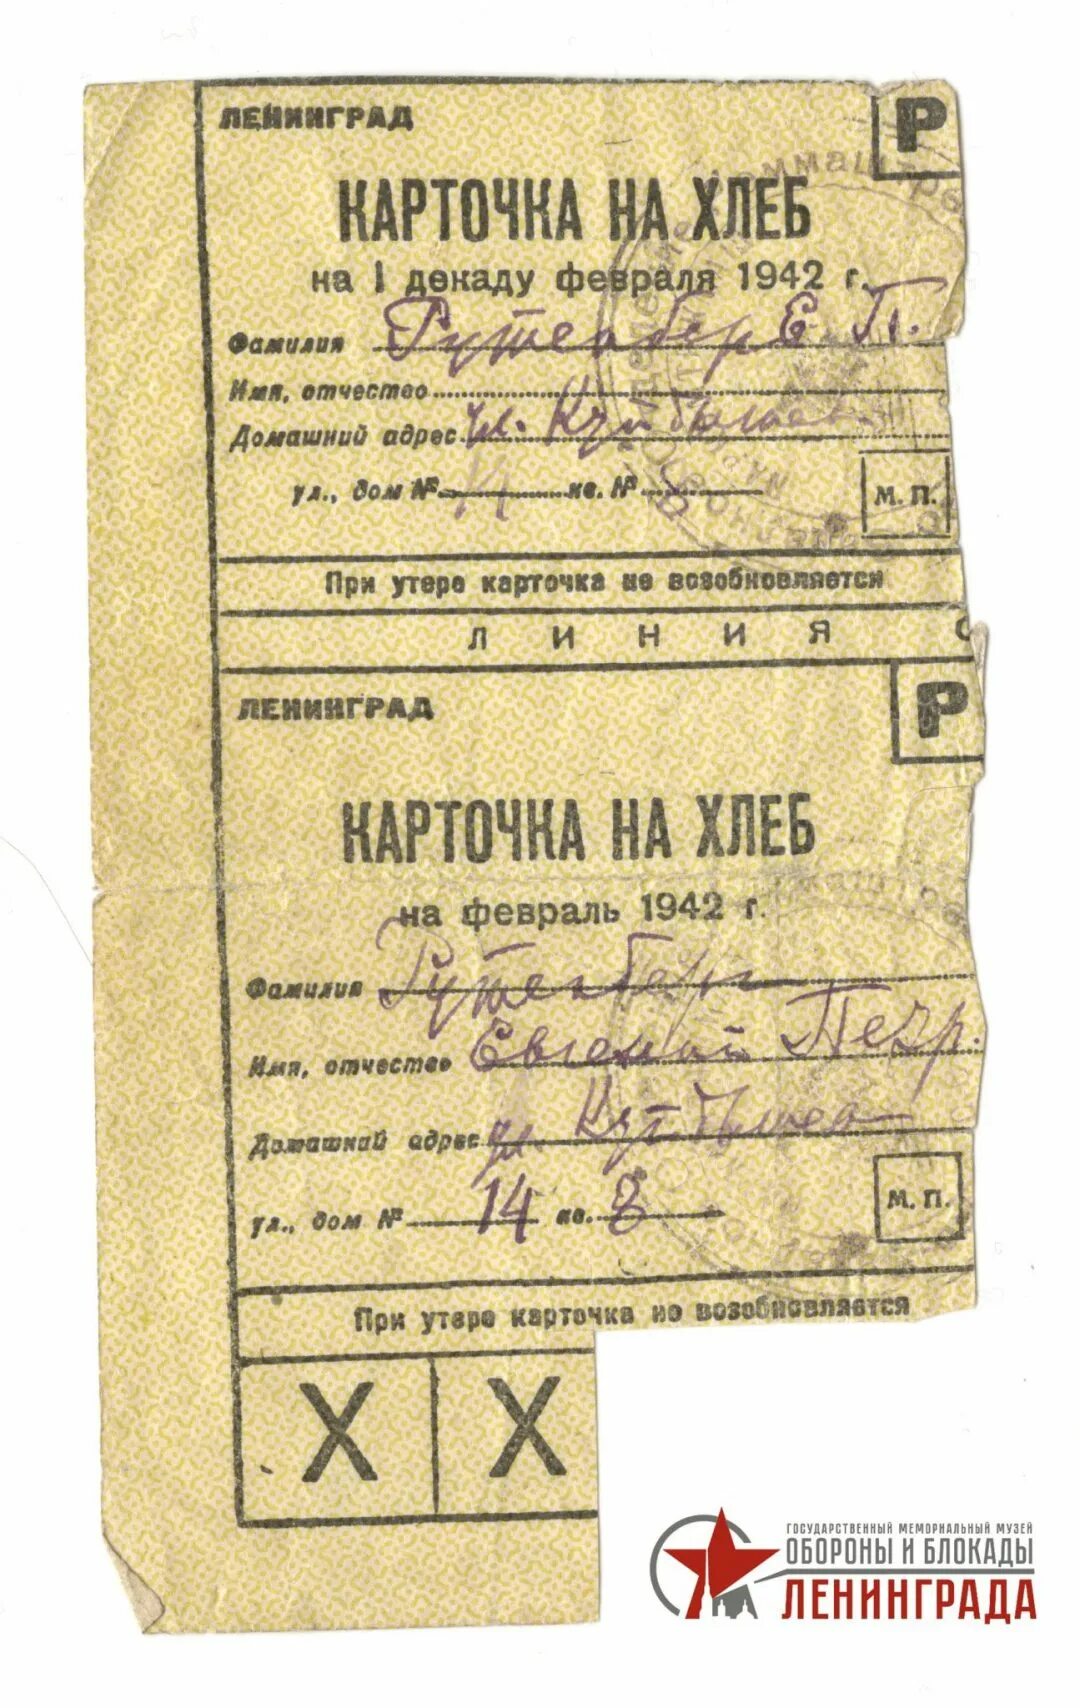 ЛЕНИНГРАД
Р
КАРТОЧКА НА ХЛЕБ
на 1 декаду февраля 1942 г.
Фамилия Рутенберг Е. П.
Имя, отчество
Домашний адрес ул. Куйбышева
ул., дом № 14 кв. № 8
М. П.
При утере карточка не возобновляется
ЛИНИЯ О
ЛЕНИНГРАД
Р
КАРТОЧКА НА ХЛЕБ
на февраль 1942 г.
Фамилия Рутенберг
Имя, отчество Евгений Петр.
Домашний адрес ул. Куйбышева
ул., дом № 14 кв. 8
М. П.
При утере карточка не возобновляется
Х Х
ГОСУДАРСТВЕННЫЙ МЕМОРИАЛЬНЫЙ МУЗЕЙ
ОБОРОНЫ И БЛОКАДЫ
ЛЕНИНГРАДА